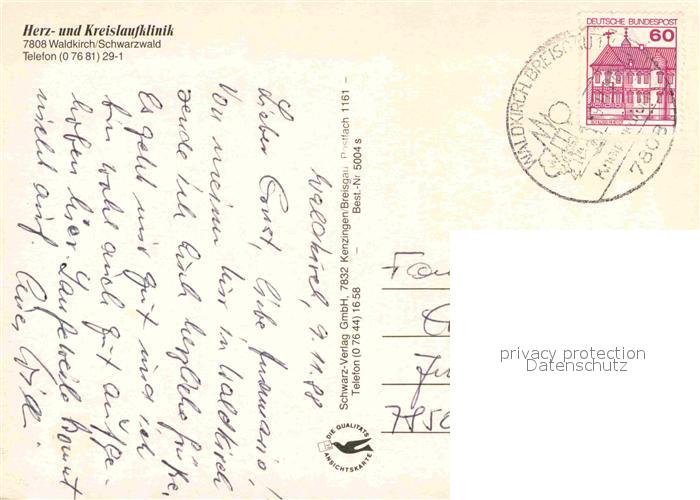 Herz- und Kreislaufklinik
7808 Waldkirch/Schwarzwald
Telefon (0 76 81) 29-1
DEUTSCHE BUNDESPOST
60
WALDKIRCH, BREISGAU
7808
Waldkirch, 9.11.88
Lieber Ernst, liebe Annemarie!
Von meiner Kur in Waldkirch
sende ich Euch herzliche Grüße.
Es geht mir gut und ich
bin wohl auch gut aufge-
hoben hier. Langeweile kommt
nicht auf.
Schwarz-Verlag GmbH, 7832 Kenzingen/Breisgau, Postfach 1161 –
Telefon (0 76 44) 16 58 – Best.-Nr 5004 s
DIE QUALITÄTS
ANSICHTSKARTE
privacy protection
Datenschutz